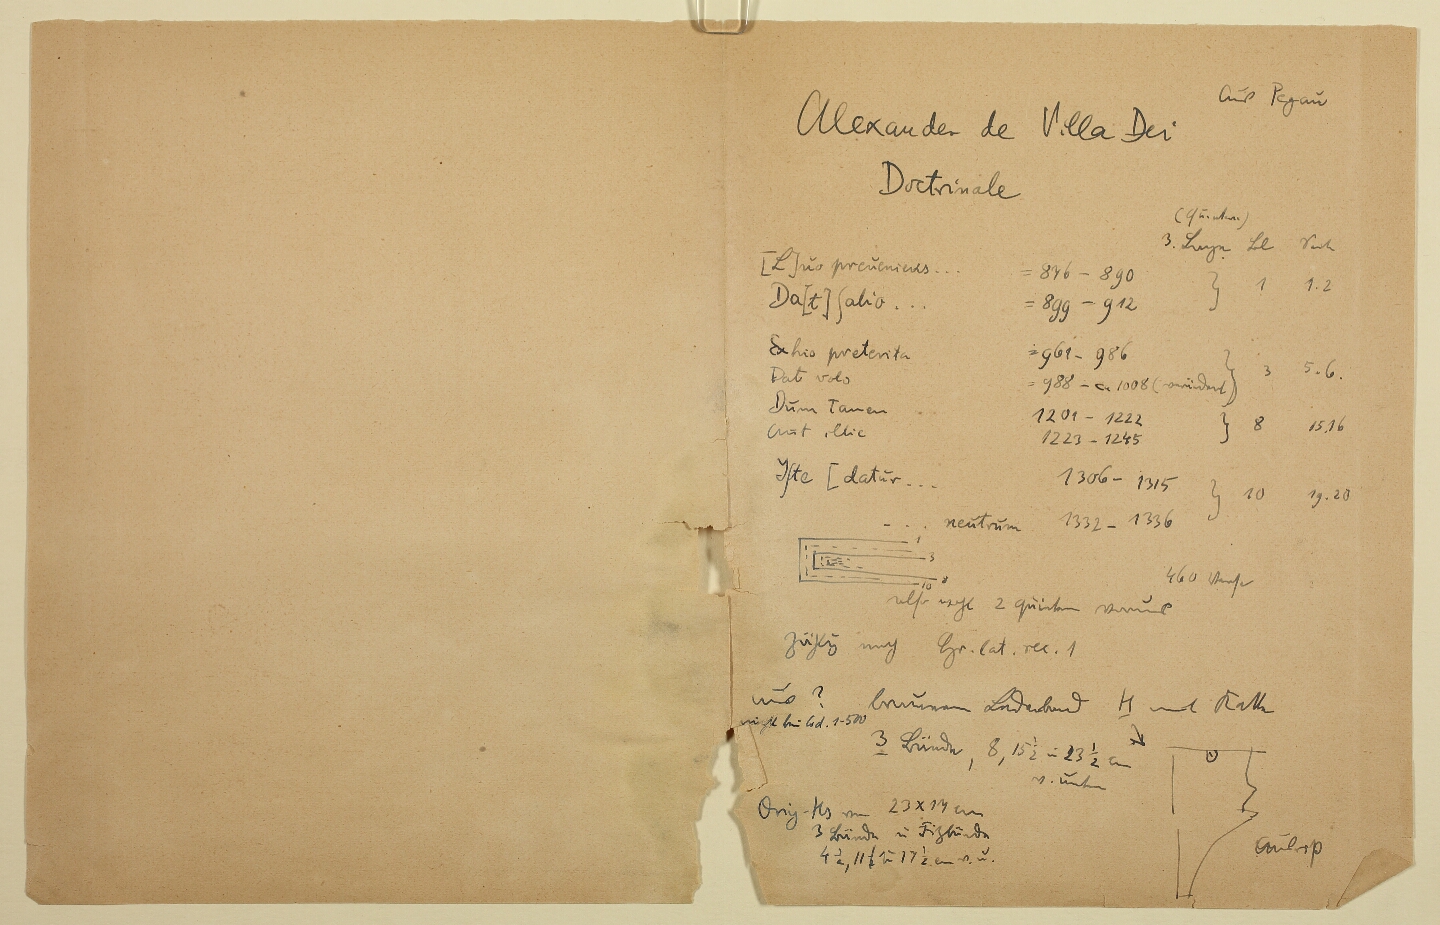 Aus Pegau
Alexander de Villa Dei
Doctrinale
3. Lage Bl Vers
[L]uo preueniens... = 876 - 890 } 1 1.2
Da[t] salio... = 899 - 912
preterita = 961 - 986 } 3 5.6.
Dat volo = 988 - ca 1008 (verändert)
Dum Tamen 1201 - 1222 } 8 15.16
Aut illic 1223 - 1245
Iste [datur... 1306 - 1315 } 10 19.20
... neutrum 1332 - 1336
1
3
8
10
460 Verse
also wohl 2 voraus
Gr. lat. rec. 1
wo? braunem Lederband H mit Kette
nicht bei Cod. 1-500
3 Bünde, 8, 15½ - 23½ cm
v. unten
Orig-Hs von 23x17 cm
3 Bünde u Fitzbünde
4½, 11½ u 17½ cm v. u.